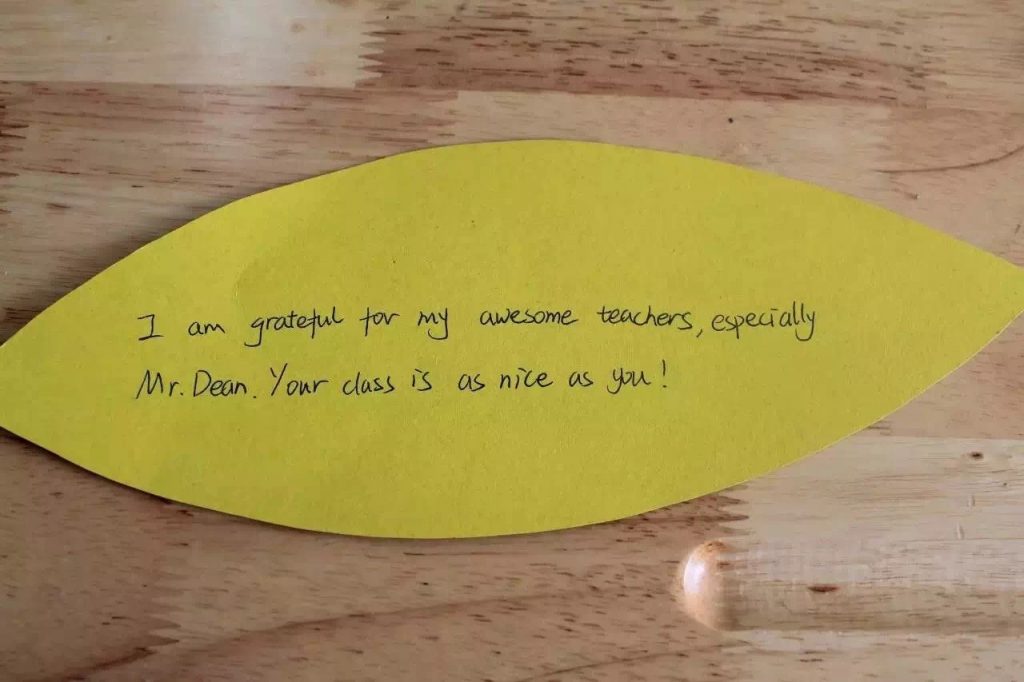 I am grateful for my awesome teachers, especially
Mr. Dean. Your class is as nice as you!